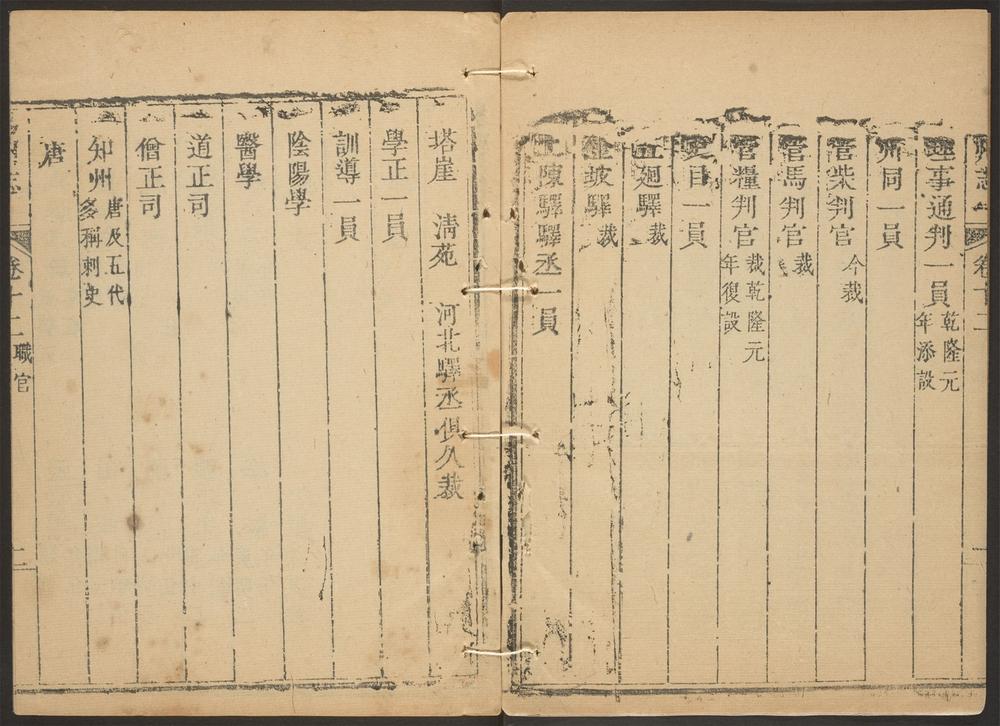 州志 卷首二
理事通判一員 乾隆元年添設
州同一員
管柴判官 今裁
管馬判官 裁
管糧判官 裁乾隆元年復設
吏目一員
廻驛 裁
坡驛 裁
陳驛驛丞一員
塔崖 淸苑 河北驛丞俱久裁
學正一員
訓導一員
陰陽學
醫學
道正司
僧正司
知州 唐及五代多稱刺史
唐
志 卷十二 職官